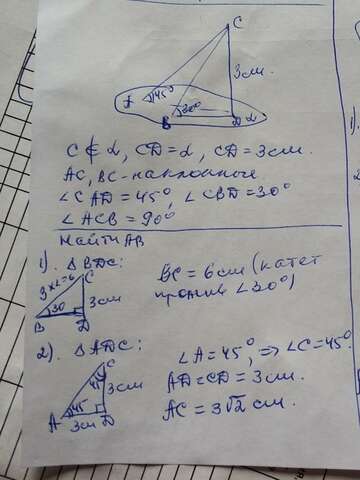 C
3см.
A 45°
30°
B D α
C ∉ α, CD = α, CD = 3см.
AC, BC - наклонные
∠CAD = 45°, ∠CBD = 30°
∠ACB = 90°
Найти AB
1). △BDC: BC = 6см (катет
C против ∠30°)
3×2=6
30 3см
B D
2). △ADC: ∠A = 45°, ⇒ ∠C = 45°
C AD = CD = 3см.
45 3см AC = 3√2 см.
A 45
3см D
1).
2